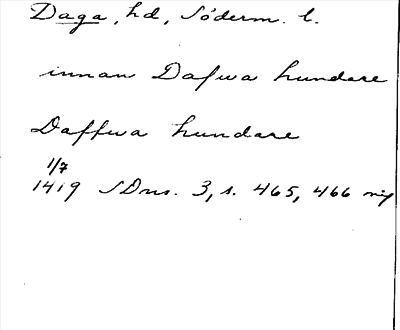 Daga, hd, Söderm. l.
innan Dafwa hundare
Daffwa hundare
1/7
1419 SDns. 3, s. 465, 466